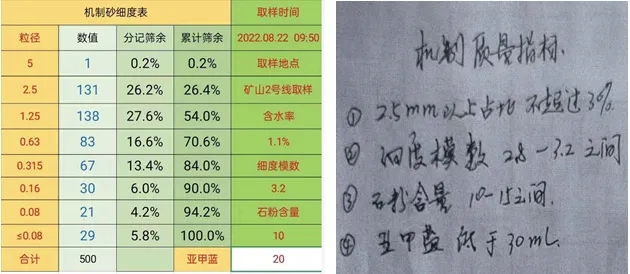 机制砂细度表 取样时间
粒径 数值 分记筛余 累计筛余 2022.08.22 09:50
5 1 0.2% 0.2% 取样地点
2.5 131 26.2% 26.4% 矿山2号线取样
1.25 138 27.6% 54.0% 含水率
0.63 83 16.6% 70.6% 1.1%
0.315 67 13.4% 84.0% 细度模数
0.16 30 6.0% 90.0% 3.2
0.08 21 4.2% 94.2% 石粉含量
≤0.08 29 5.8% 100.0% 10
合计 500 亚甲蓝 20
机制质量指标.
① 2.5mm以上占比不超过
② 细度模数 2.8-3.2之间
③ 石粉含量 10-15之间.
④ 亚甲蓝 低于30mL.